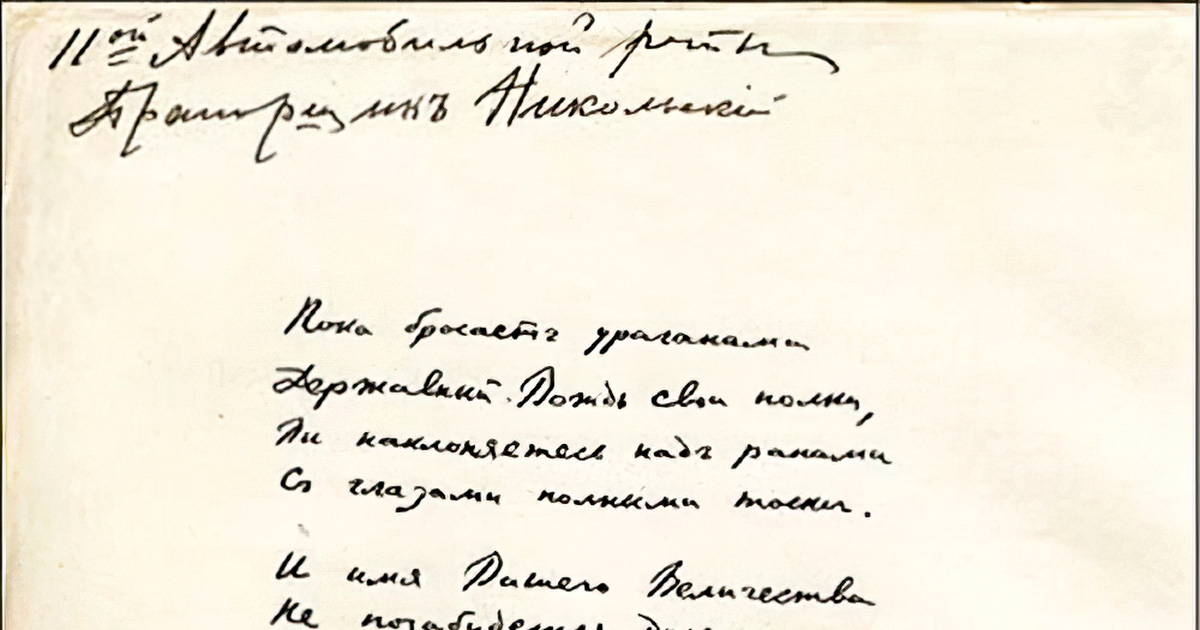 11ой Автомобильной роты
Прапорщикъ Никольскій
Пока бросаетъ ураганами
Державный Вождь свои полки,
Вы наклоняетесь надъ ранами
Съ глазами полными тоски.
И имя Вашего Величества
Не позабудется